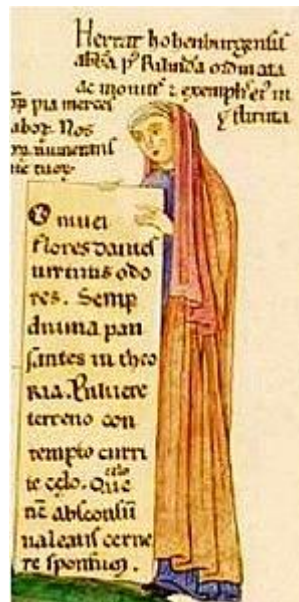 Herrat hohenburgensis
abb̄a p' Rilinda ordinata
ac monit' ⁊ exempl' ei' in
stituta
pia merces
labor. Nos
numerans
O nivei
flores dantes
virtutis odo
res. Semp
divina pau
santes in theo
ria. Pulvere
terreno con
tempto curri
te celo. Que
nc̄ absconsū
valeatis cerne
re sponsum.